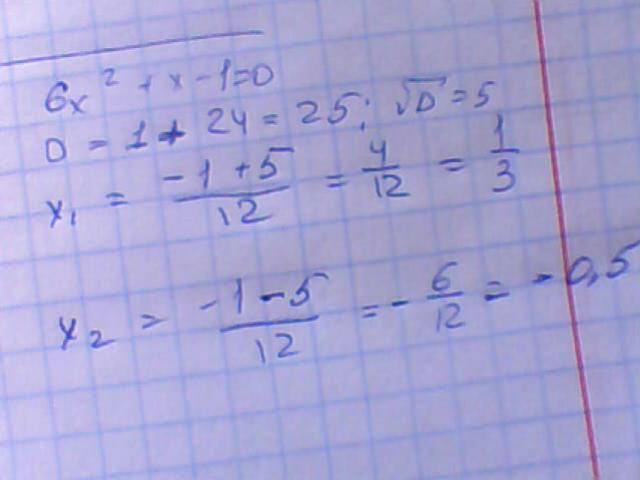 6x² + x - 1 = 0
D = 1 + 24 = 25; √D = 5
x₁ = (-1 + 5)/12 = 4/12 = 1/3
x₂ = (-1 - 5)/12 = - 6/12 = - 0,5